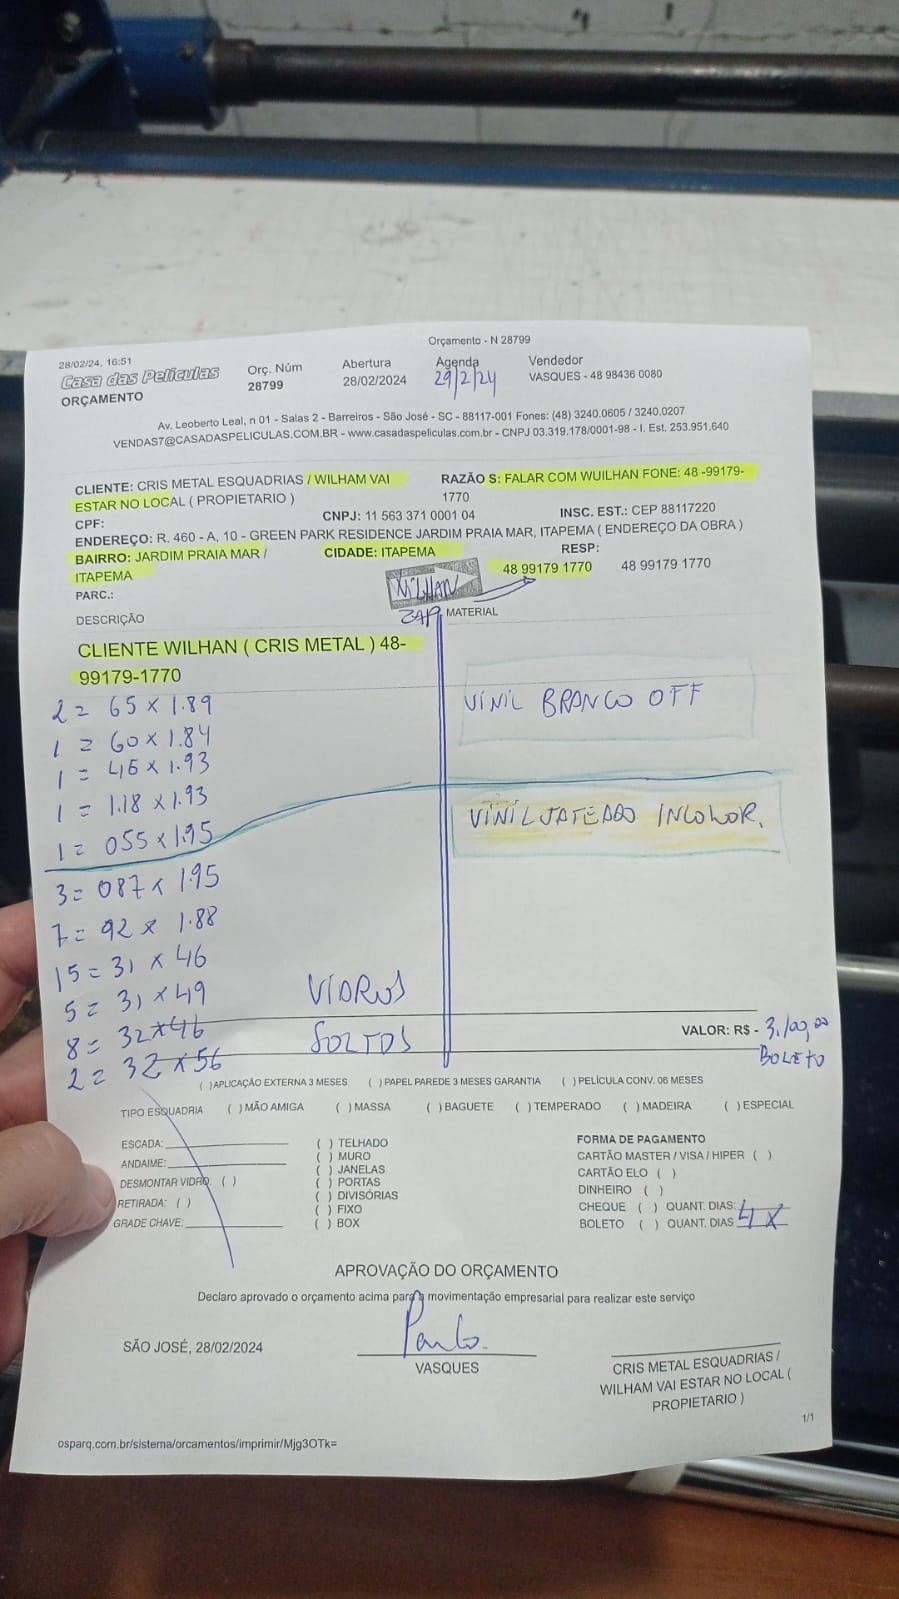 Orçamento - N 28799
28/02/24, 16:51
Casa das Películas
ORÇAMENTO
Orç. Núm
28799
Abertura
28/02/2024
Agenda
29/2/24
Vendedor
VASQUES - 48 98436 0080
Av. Leoberto Leal, n 01 - Salas 2 - Barreiros - São José - SC - 88117-001 Fones: (48) 3240.0605 / 3240.0207
VENDAS7@CASADASPELICULAS.COM.BR - www.casadaspeliculas.com.br - CNPJ 03.319.178/0001-98 - I. Est. 253.951.640
CLIENTE: CRIS METAL ESQUADRIAS / WILHAM VAI
ESTAR NO LOCAL ( PROPIETARIO )
RAZÃO S: FALAR COM WUILHAN FONE: 48 -99179-
1770
CPF:
CNPJ: 11 563 371 0001 04
INSC. EST.: CEP 88117220
ENDEREÇO: R. 460 - A, 10 - GREEN PARK RESIDENCE JARDIM PRAIA MAR, ITAPEMA ( ENDEREÇO DA OBRA )
BAIRRO: JARDIM PRAIA MAR /
ITAPEMA
CIDADE: ITAPEMA
RESP:
48 99179 1770
48 99179 1770
PARC.:
WILHAN
ZAP
DESCRIÇÃO
MATERIAL
CLIENTE WILHAN ( CRIS METAL ) 48-
99179-1770
2 = 65 x 1.89
1 = 60 x 1.84
1 = 46 x 1.93
1 = 1.18 x 1.93
1 = 055 x 1.95
3 = 087 x 1.95
7 = 92 x 1.88
15 = 31 x 46
5 = 31 x 49
8 = 32 x 46
2 = 32 x 56
VINIL BRANCO OFF
VINIL JATEADO INCOLOR.
VIDROS
SOLTOS
VALOR: R$ - 3.100,00
BOLETO
( )APLICAÇÃO EXTERNA 3 MESES ( ) PAPEL PAREDE 3 MESES GARANTIA ( ) PELÍCULA CONV. 06 MESES
TIPO ESQUADRIA ( ) MÃO AMIGA ( ) MASSA ( ) BAGUETE ( ) TEMPERADO ( ) MADEIRA ( ) ESPECIAL
ESCADA:
ANDAIME:
DESMONTAR VIDRO: ( )
RETIRADA: ( )
GRADE CHAVE:
( ) TELHADO
( ) MURO
( ) JANELAS
( ) PORTAS
( ) DIVISÓRIAS
( ) FIXO
( ) BOX
FORMA DE PAGAMENTO
CARTÃO MASTER / VISA / HIPER ( )
CARTÃO ELO ( )
DINHEIRO ( )
CHEQUE ( ) QUANT. DIAS:
BOLETO ( ) QUANT. DIAS 4X
APROVAÇÃO DO ORÇAMENTO
Declaro aprovado o orçamento acima para a movimentação empresarial para realizar este serviço
SÃO JOSÉ, 28/02/2024
Paulo
VASQUES
CRIS METAL ESQUADRIAS /
WILHAM VAI ESTAR NO LOCAL (
PROPIETARIO )
1/1
osparq.com.br/sistema/orcamentos/imprimir/Mjg3OTk=